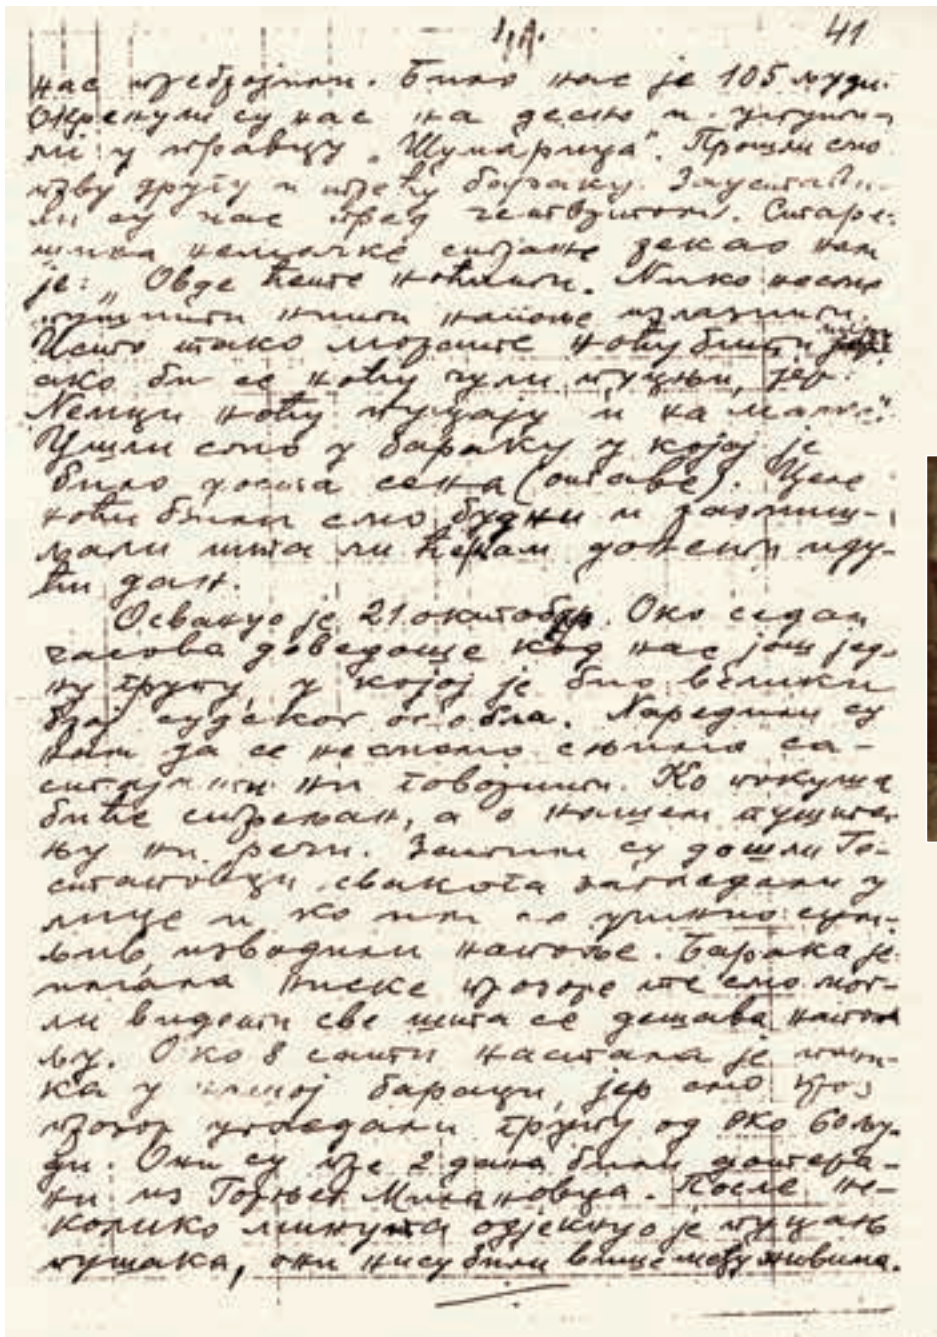 41
нас пребројили. Било нас је 105 људи.
Окренули су нас на десно и упути-
ли у правцу „Шумарица". Прошли смо
прву другу и трећу бараку. Заустави-
ли су нас пред четвртом. Старе-
шина немачке страже рекао нам
је: „Овде ћете ноћити. Нико несме
пушити нити напоље излазити.
Исто тако морате ноћу бити
ако би се ноћу чули пуцњи, јер
Немци ноћу пуцају и на мачке".
Ушли смо у бараку у којој је
било доста сена (отаве). Целе
ноћи били смо будни и размиш-
љали шта ли ће нам донети иду-
ћи дан.
Освануо је 21 октобар. Око седам
часова доведоше код нас још јед-
ну групу, у којој је био велики
број судског особља. Наредили су
нам да се несмемо с њима са-
стајати ни говорити. Ко покуша
биће стрељан, а о нашем пуштa-
њу ни речи. Затим су дошли Ге-
стаповци свакога загледали у
лице и ко им се учинио сум-
њив, изводили напоље. Барака је
имала ниске прозоре те смо мог-
ли видети све шта се дешава напо-
љу. Око 8 сати настала је пани-
ка у нашој бараци, јер смо кроз
прозор угледали групу од око 60 љу-
ди. Они су пре 2 дана били дотера-
ни из Горњег Милановца. После не-
колико минута одјекнуо је пуцањ
пушака, они нису били више међу живима.